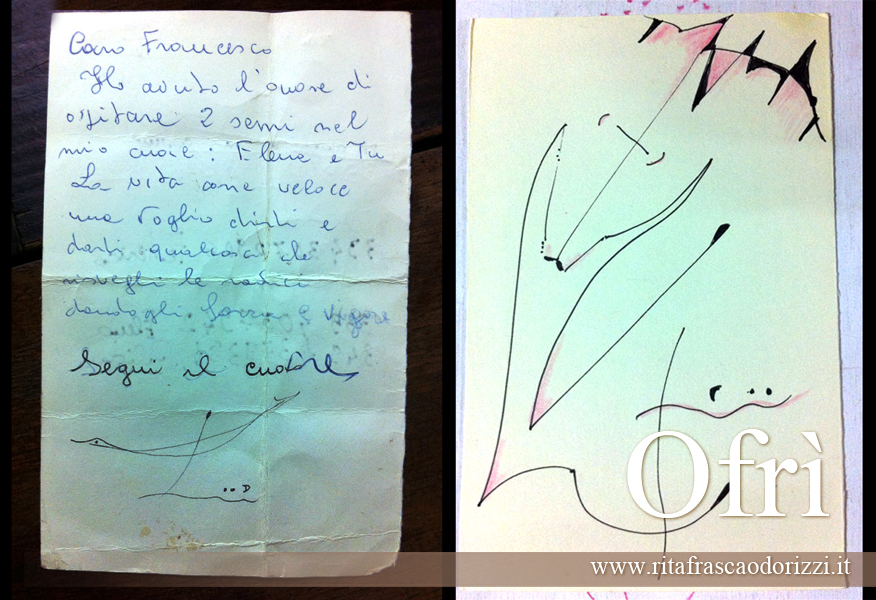 Caro Francesco
Ho avuto l'onore di
ospitare 2 semi nel
mio cuore: Elena e Tu
La vita corre veloce
ma voglio dirti e
darti qualcosa che
risvegli le radici
dandogli forza e vigore
Segui il cuore
Ofrì
www.ritafrascaodorizzi.it